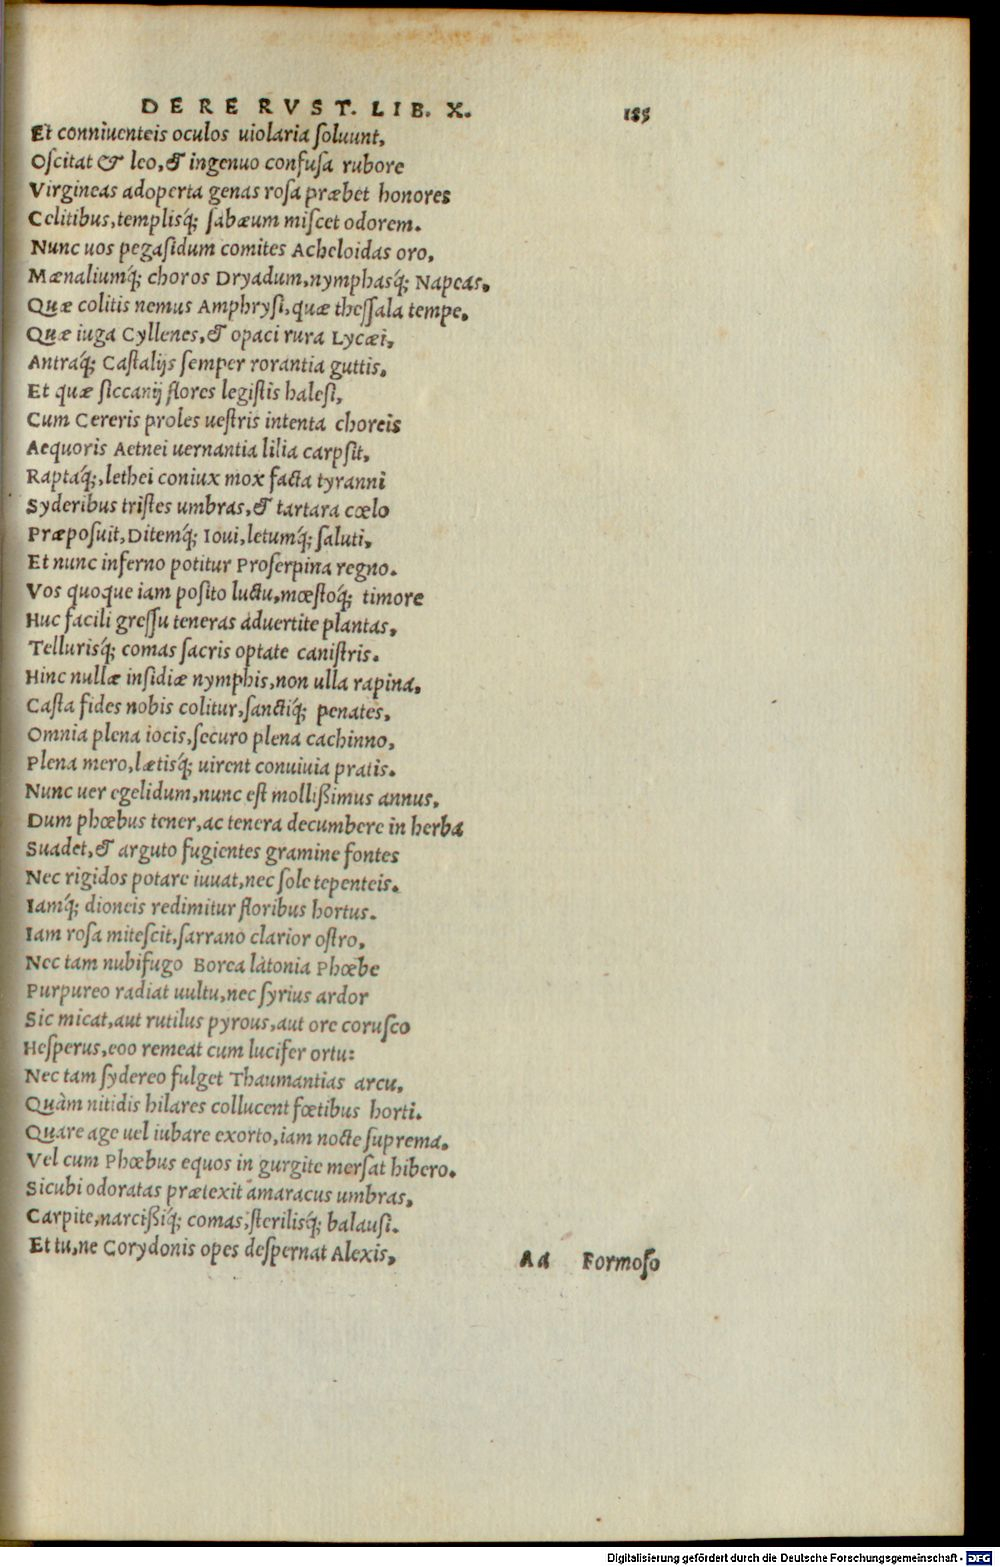 DE RE RVST. LIB. X. 155
Et conniuenteis oculos uiolaria soluunt,
Oscitat & leo, & ingenuo confusa rubore
Virgineas adoperta genas rosa præbet honores
Celitibus, templisq́; sabæum miscet odorem.
Nunc uos pegasidum comites Acheloidas oro,
Mænaliumq́; choros Dryadum, nymphasq́; Napeas,
Quæ colitis nemus Amphrysi, quæ thessala tempe,
Quæ iuga Cyllenes, & opaci rura Lycæi,
Antraq́; Castalijs semper rorantia guttis,
Et quæ siccanij flores legistis halesi,
Cum Cereris proles uestris intenta choreis
Aequoris Aetnei uernantia lilia carpsit,
Raptaq́;, lethei coniux mox facta tyranni
Syderibus tristes umbras, & tartara cœlo
Præposuit, Ditemq́; Ioui, letumq́; saluti,
Et nunc inferno potitur Proserpina regno.
Vos quoque iam posito luctu, mœstoq́; timore
Huc facili gressu teneras aduertite plantas,
Tellurisq́; comas sacris optate canistris.
Hinc nullæ insidiæ nymphis, non ulla rapina,
Casta fides nobis colitur, sanctiq́; penates,
Omnia plena iocis, securo plena cachinno,
Plena mero, lætisq́; uirent conuiuia pratis.
Nunc uer egelidum, nunc est mollißimus annus,
Dum phœbus tener, ac tenera decumbere in herba
Suadet, & arguto fugientes gramine fontes
Nec rigidos potare iuuat, nec sole tepenteis.
Iamq́; dioneis redimitur floribus hortus.
Iam rosa mitescit, sarrano clarior ostro,
Nec tam nubifugo Borea làtonia Phœbe
Purpureo radiat uultu, nec syrius ardor
Sic micat, aut rutilus pyrous, aut ore corusco
Hesperus, eoo remeat cum lucifer ortu:
Nec tam sydereo fulget Thaumantias arcu,
Quàm nitidis hilares collucent fœtibus horti.
Quare age uel iubare exorto, iam nocte suprema,
Vel cum Phœbus equos in gurgite mersat hibero.
Sicubi odoratas prætexit amaracus umbras,
Carpite, narcißiq́; comas, sterilisq́; balausi.
Et tu, ne Corydonis opes despernat Alexis,
Ad Formoso
Digitalisierung gefördert durch die Deutsche Forschungsgemeinschaft - DFG